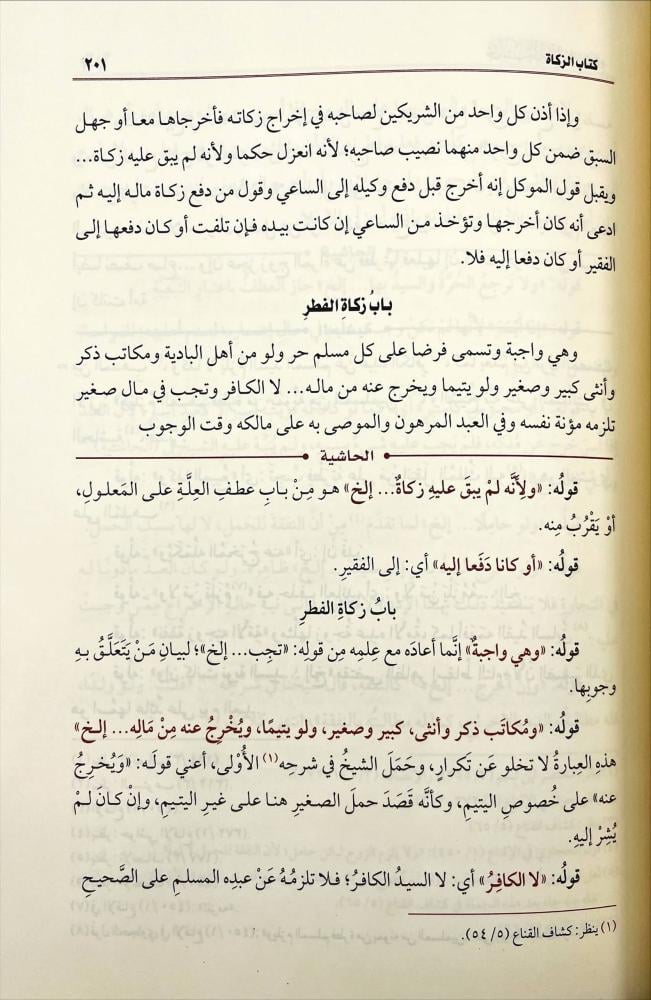 كتاب الزكاة ٢٠١
وإذا أذن كل واحد من الشريكين لصاحبه في إخراج زكاته فأخرجاها معا أو جهل
السبق ضمن كل واحد منهما نصيب صاحبه؛ لأنه انعزل حكما ولأنه لم يبق عليه زكاة...
ويقبل قول الموكل إنه أخرج قبل دفع وكيله إلى الساعي وقول من دفع زكاة ماله إليه ثم
ادعى أنه كان أخرجها وتؤخذ من الساعي إن كانت بيده فإن تلفت أو كان دفعها إلى
الفقير أو كان دفعا إليه فلا.
بابُ زكاةِ الفطرِ
وهي واجبة وتسمى فرضا على كل مسلم حر ولو من أهل البادية ومكاتب ذكر
وأنثى كبير وصغير ولو يتيما ويخرج عنه من ماله... لا الكافر وتجب في مال صغير
تلزمه مؤنة نفسه وفي العبد المرهون والموصى به على مالكه وقت الوجوب
الحاشية
قولُه: «ولأَنَّه لمْ يبقَ عليهِ زكاةٌ... إلخ» هو مِنْ بابِ عطفِ العِلَّةِ على المَعلولِ،
أوْ يَقْرُبُ مِنه.
قولُه: «أو كانا دَفَعا إليه» أي: إلى الفقيرِ.
بابُ زكاةِ الفطرِ
قولُه: «وهي واجبةٌ» إنَّما أعادَه مع عِلمِه مِن قولِه: «تجِب... إلخ»؛ لبيانِ مَنْ يَتَعَلَّقُ بهِ
وجوبِها.
قولُه: «ومُكاتَب ذكر وأنثى، كبير وصغير، ولو يتيمًا، ويُخْرِجُ عنه مِنْ مَالِه... إلخ»
هذهِ العِبارةُ لا تخلو عَن تكرارٍ، وحَمَلَ الشيخُ في شرحِه(١) الأُوْلى، أعني قولَه: «وَيُخرِجُ
عنه» على خُصوصِ اليتيمِ، وكأنَّه قَصَدَ حملَ الصغيرِ هنا على غيرِ اليتيمِ، وإنْ كانَ لمْ
يُشِرْ إليهِ.
قولُه: «لا الكافِرُ» أي: لا السيدُ الكافرُ؛ فلا تلزمُهُ عَنْ عبدِه المسلمِ على الصَّحيحِ
(١) ينظر: كشاف القناع (٥/ ٥٤).